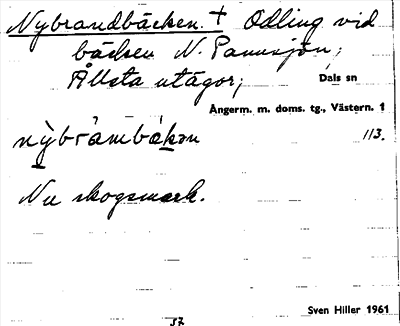 Nybrandbäcken. † Odling vid
bäcken N. Pannsjön,
Ållsta utägor,
Dals sn
Ångerm. m. doms. tg., Västern. 1
nỳbrámbäkən
113.
Nu skogsmark.
Sven Hiller 1961
57